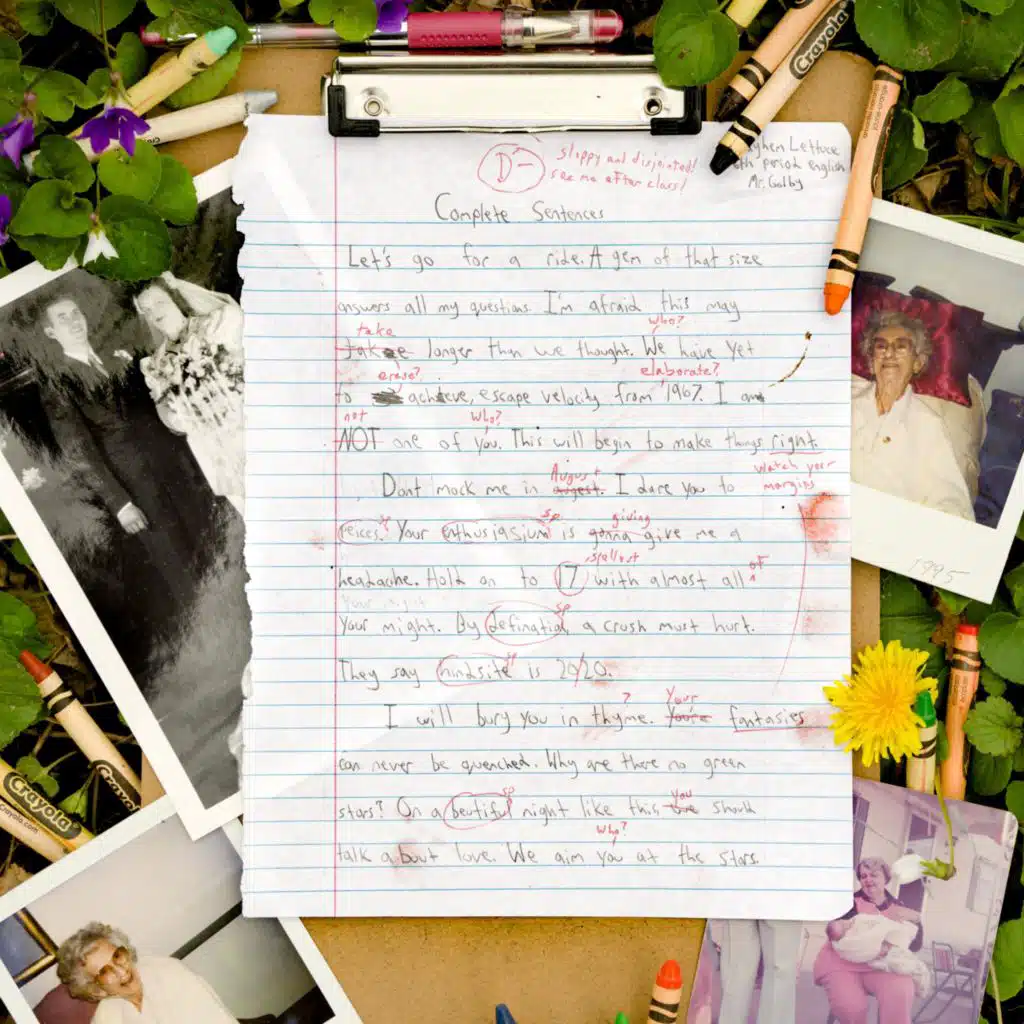 Crayola
D-
sloppy and disjointed!
see me after class!
Lettuce
period english
Mr. Galby
Complete Sentences
Let's go for a ride. A gem of that size
answers all my questions. I'm afraid this may
take who?
longer than we thought. We have yet
erase? elaborate?
to achieve, escape velocity from 1967. I am
not who?
NOT one of you. This will begin to make things right.
August watch your
Dont mock me in augest. I dare you to margins
sp giving
peices. sp Your enthusiasjum is gonna give me a
spell out
headache. Hold on to 17 with almost all of
Your might
your might. By defination sp a crush must hurt.
They say hindsite sp is 20/20.
? Your
I will bury you in thyme. You're fantasies
can never be quenched. Why are there no green
sp you
stars? On a beautiful night like this should
who?
talk about love. We aim you at the stars.
1995
Crayola
Crayola.com